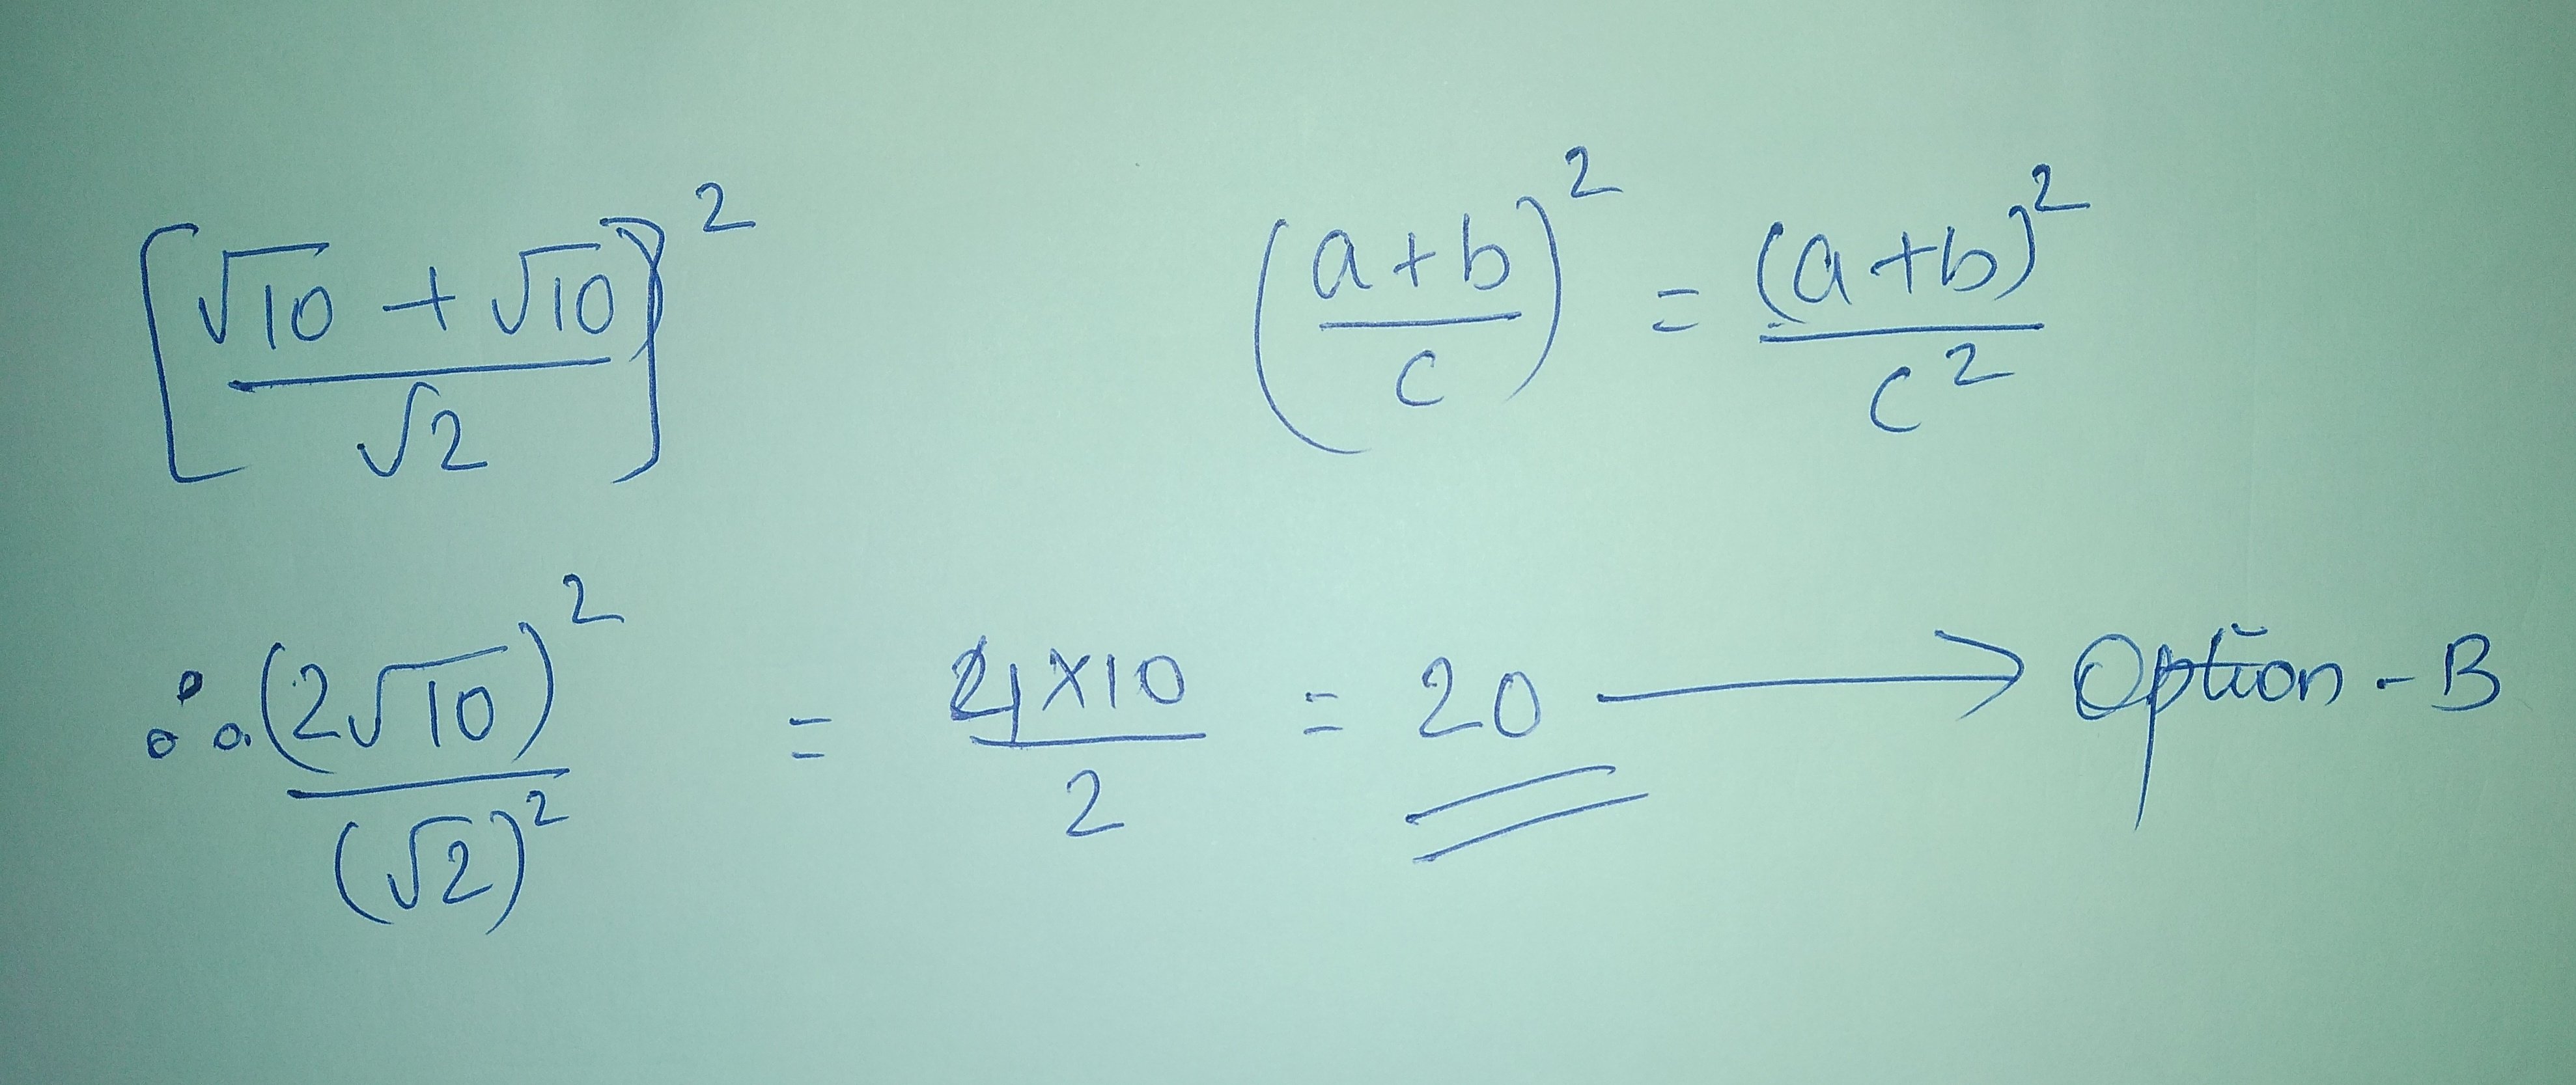 [(√10 + √10)/√2]² ((a+b)/c)² = (a+b)²/c²
∴ (2√10)²/(√2)² = 4×10/2 = 20 → Option - B